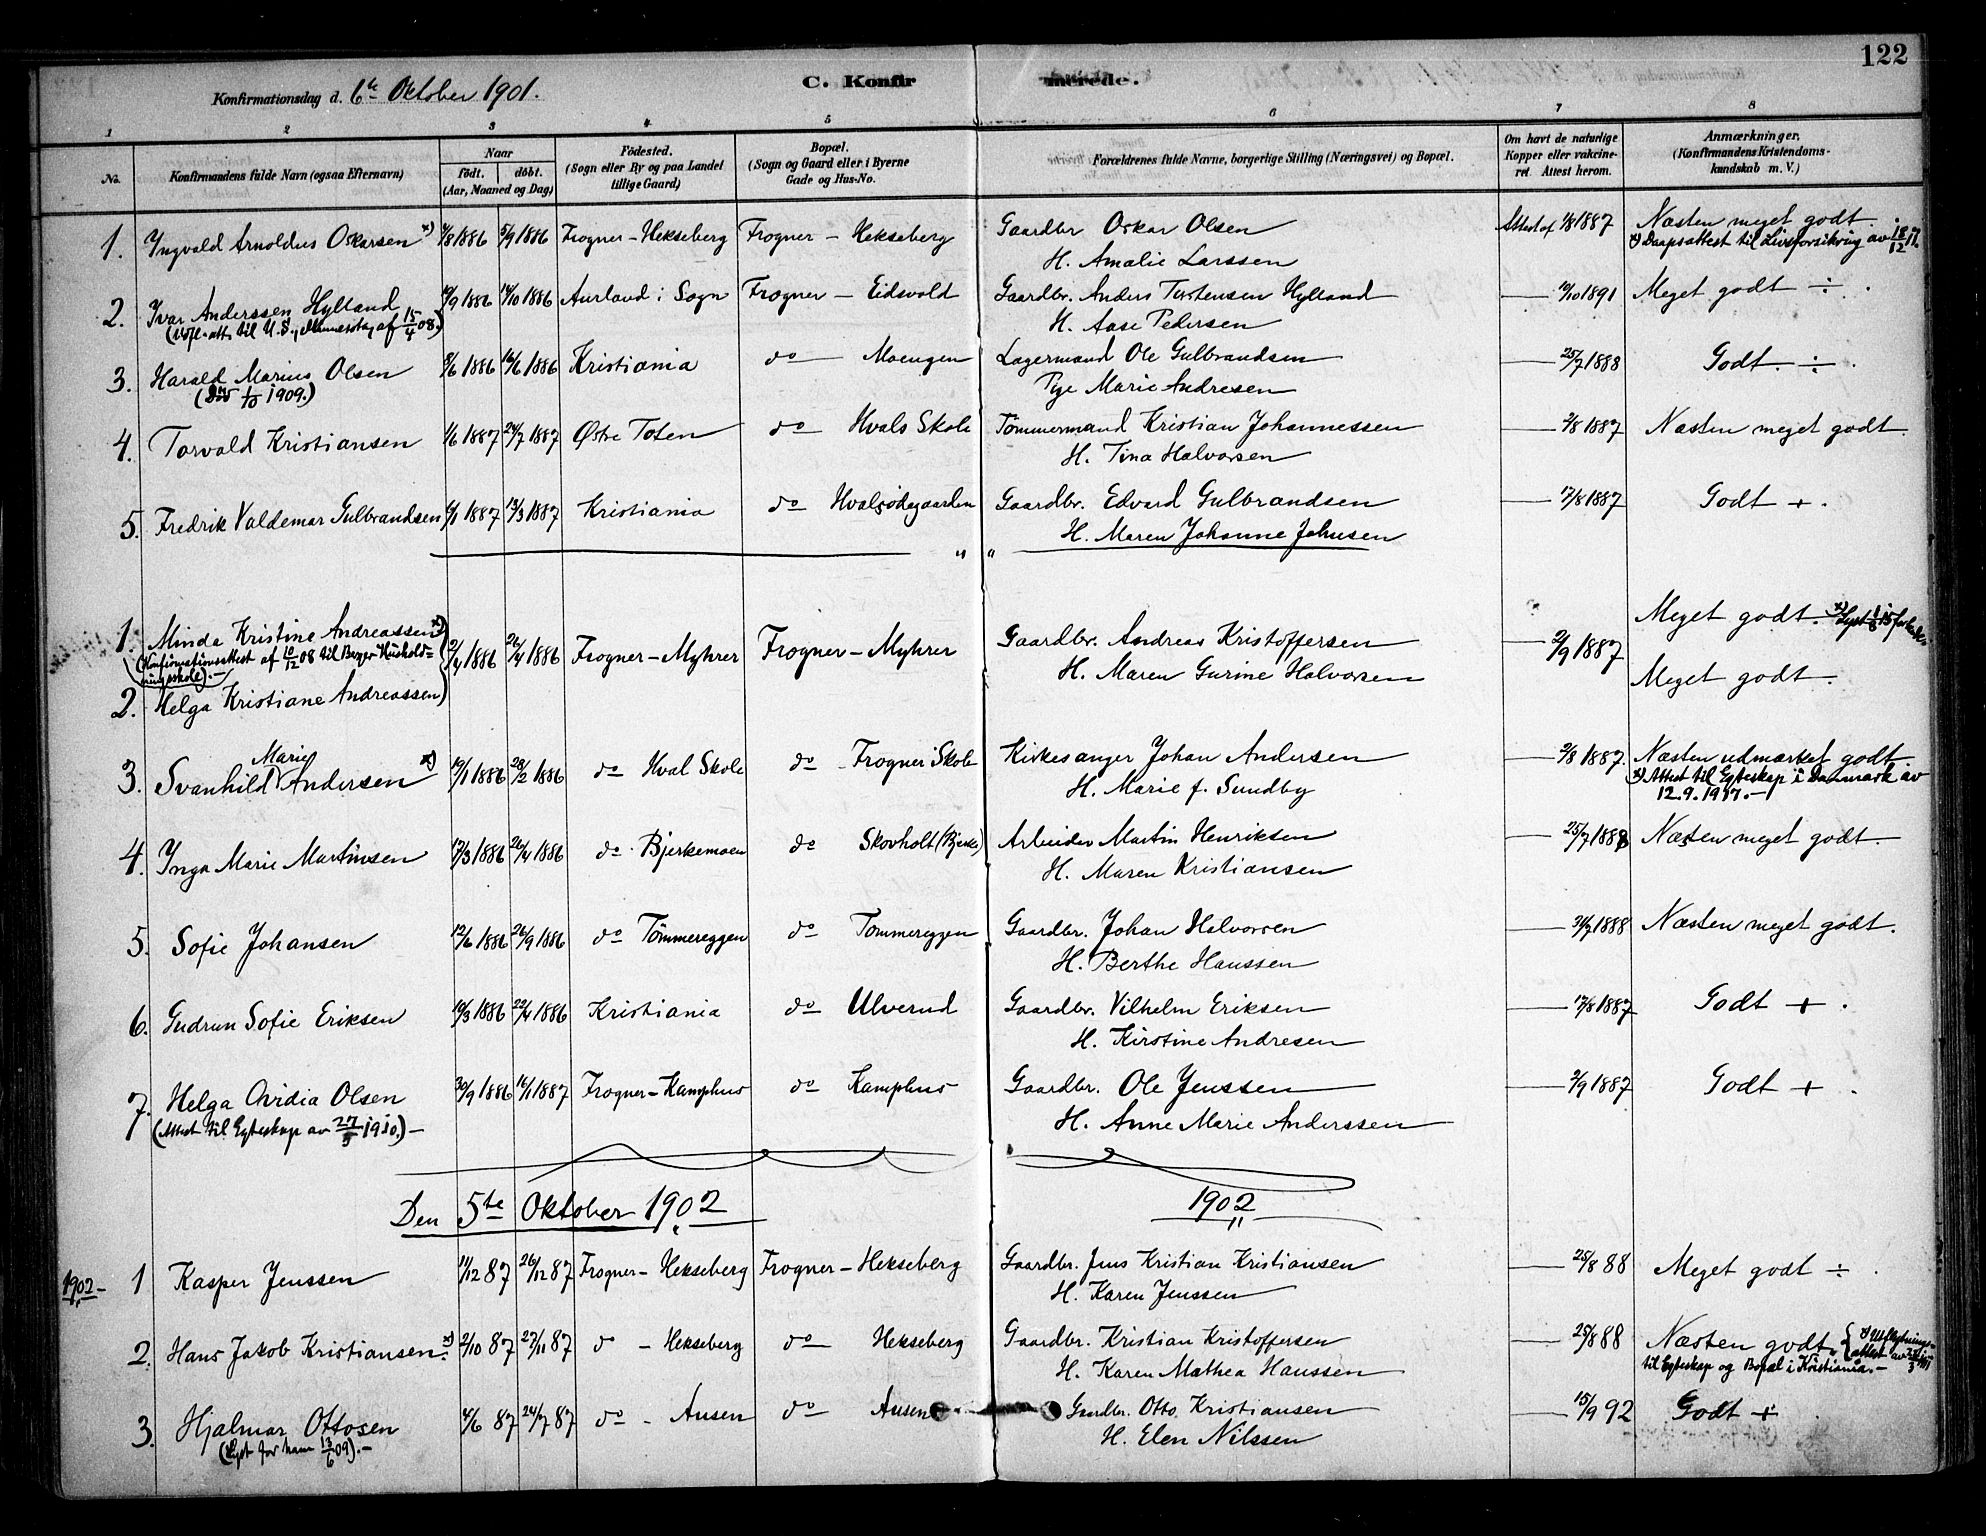 122
Konfirmationsdag d. 6te Oktober 1901.
C. Konfir merede.
1 2 3 4 5 6 7 8
No.
Konfirmandens fulde Navn (ogsaa Efternavn)
Naar
födt. döbt.
(Aar, Moaned og Dag)
Födested.
(Sogn eller By og paa Landet
tillige Gaard)
Bopæl.
(Sogn og Gaard eller i Byerne
Gade og Hus-No.
Forældrenes fulde Navne, borgerlige Stilling (Næringsvei) og Bopæl.
Om havt de naturlige
Kopper eller vakcine-
ret. Attest herom.
Anmærkninger.
(Konfirmandens Kristendoms-
kundskab m. V.)
1. Yngvald Arnoldus Oskarsen x) /8 1886 5/9 1886 Frogner - Hekseberg Frogner - Hekseberg Gaardbr Oskar Olsen Attest af 1/8 1887 Næsten meget godt.
H. Amalie Larssen x) Daapsattest til Livsforsikring av 18/12 17.
2. Ivar Anderssen Hylland /9 1886 /10 1886 Aurland i Sogn Frogner - Eidsvold Gaardbr. Anders Torstensen Hylland — /10 1891 Meget godt ÷
(Utfl. att. til U. S., Minnesota, af 15/4 08.) H. Aase Pedersen
3. Harald Marius Olsen 8/6 1886 16/6 1886 Kristiania do — Moengen Lagermand Ole Gulbrandsen — 25/7 1888 Godt. ÷
(Död 1/10 1909.) Pige Marie Andresen
4. Torvald Kristiansen 1/6 1887 24/7 1887 Østre Toten do Hvals Skole Tömmermand Kristian Johannessen — 2/8 1887 Næsten meget godt.
H. Tina Halvorsen
5. Fredrik Valdemar Gulbrandsen 6/1 1887 13/3 1887 Kristiania do Hvalsödegaarden Gaardbr. Edvard Gulbrandsen — 17/8 1887 Godt +
H. Maren Johanne Johnsen
" "
1. Minda Kristine Andreassen x) 2/4 1886 26/4 1886 Frogner - Myhrer Frogner - Myhrer Gaardbr. Andreas Kristoffersen — 2/9 1887 Meget godt.
(Konfirmationsattest af 10/12 08 til Berger Hushold-
ningsskole). - H. Maren Gurine Halvorsen
2. Helga Kristiane Andreassen Meget godt.
3. Svanhild Marie Andersen x) 19/1 1886 28/2 1886 do Hval Skole do - Frogner Skole Kirkesanger Johan Andersen — 2/8 1887. Næsten udmærket godt.
H. Marie f. Sundby x) Attest til Egteskap i Danmark av
12.9.1917. -
4. Ynga Marie Martinsen 17/3 1886 26/4 1886 do. Bjerkemoen do Skovholt (Bjerke) Arbeider Martin Henriksen — 25/7 1888 Næsten meget godt.
H. Maren Kristiansen
5. Sofie Johansen 12/6 1886 26/9 1886 do Tömmereggen do Tömmereggen Gaardbr. Johan Halvorsen — 31/7 1888 Næsten meget godt.
H. Berthe Hanssen
6. Gudrun Sofie Eriksen 10/3 1886 22/4 1886 Kristiania do Ulverud Gaardbr. Vilhelm Eriksen — 17/8 1887 Godt +
H. Kirstine Andresen
7. Helga Ovidia Olsen 30/9 1886 16/1 1887 Frogner - Kamphus do Kamphus Gaardbr. Ole Jenssen — 2/9 1887 Godt +
(Attest til Egteskap av 27/5 1910.) - H. Anne Marie Anderssen
Den 5te Oktober 1902 1902
1902 - 1 Kasper Jenssen 11/12 87 26/12 87 Frogner - Hekseberg Frogner - Hekseberg Gaardbr. Jens Kristian Kristiansen — 25/8 88 Meget godt ÷
H. Karen Jenssen
2. Hans Jakob Kristiansen. x) 2/10 87 27/11 87 do - Hekseberg do Hekseberg Gaardbr. Kristian Kristoffersen — 25/8 88 Næsten godt. x) Utflytnings-
attest av
H. Karen Mathea Hanssen til Egteskap og Bopæl i Kristiania. -
3. Hjalmar Ottosen 4/6 87 24/7 87 do - Ausen do Ausen Gaardbr. Otto Kristiansen — 15/9 92 Godt +
(Lyst for ham 13/6 09). - H. Elen Nilssen